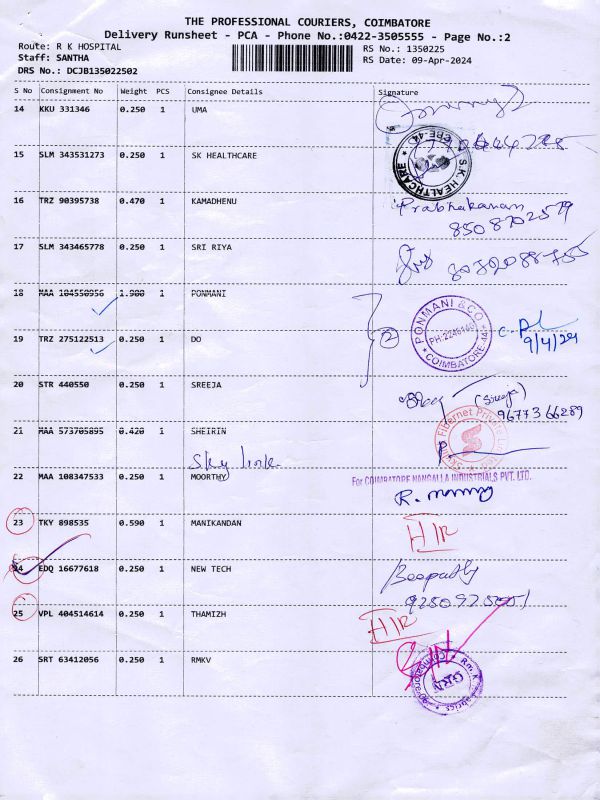 THE PROFESSIONAL COURIERS, COIMBATORE
Delivery Runsheet - PCA - Phone No.:0422-3505555 - Page No.:2
Route: R K HOSPITAL
Staff: SANTHA
DRS No.: DCJB135022502
RS No.: 1350225
RS Date: 09-Apr-2024
S No Consignment No Weight PCS Consignee Details Signature
14 KKU 331346 0.250 1 UMA
15 SLM 343531273 0.250 1 SK HEALTHCARE
S.K. HEALTHCARE * CBE-44 *
16 TRZ 90395738 0.470 1 KAMADHENU Prabhakaran
8508702579
17 SLM 343465778 0.250 1 SRI RIYA
18 MAA 104550956 1.900 1 PONMANI
PONMANI & CO
PH:2246146
* COIMBATORE-44 *
19 TRZ 275122513 0.250 1 DO 2
9/4/24
20 STR 440550 0.250 1 SREEJA (Sreeja)
9677366289
21 MAA 573705895 0.420 1 SHEIRIN
Sky link
22 MAA 108347533 0.250 1 MOORTHY
For COIMBATORE NANGALLA INDUSTRIALS PVT. LTD.
23 TKY 898535 0.590 1 MANIKANDAN H/R
24 EDQ 16677618 0.250 1 NEW TECH Boopathy
25 VPL 404514614 0.250 1 THAMIZH H/R
26 SRT 63412056 0.250 1 RMKV
GRN